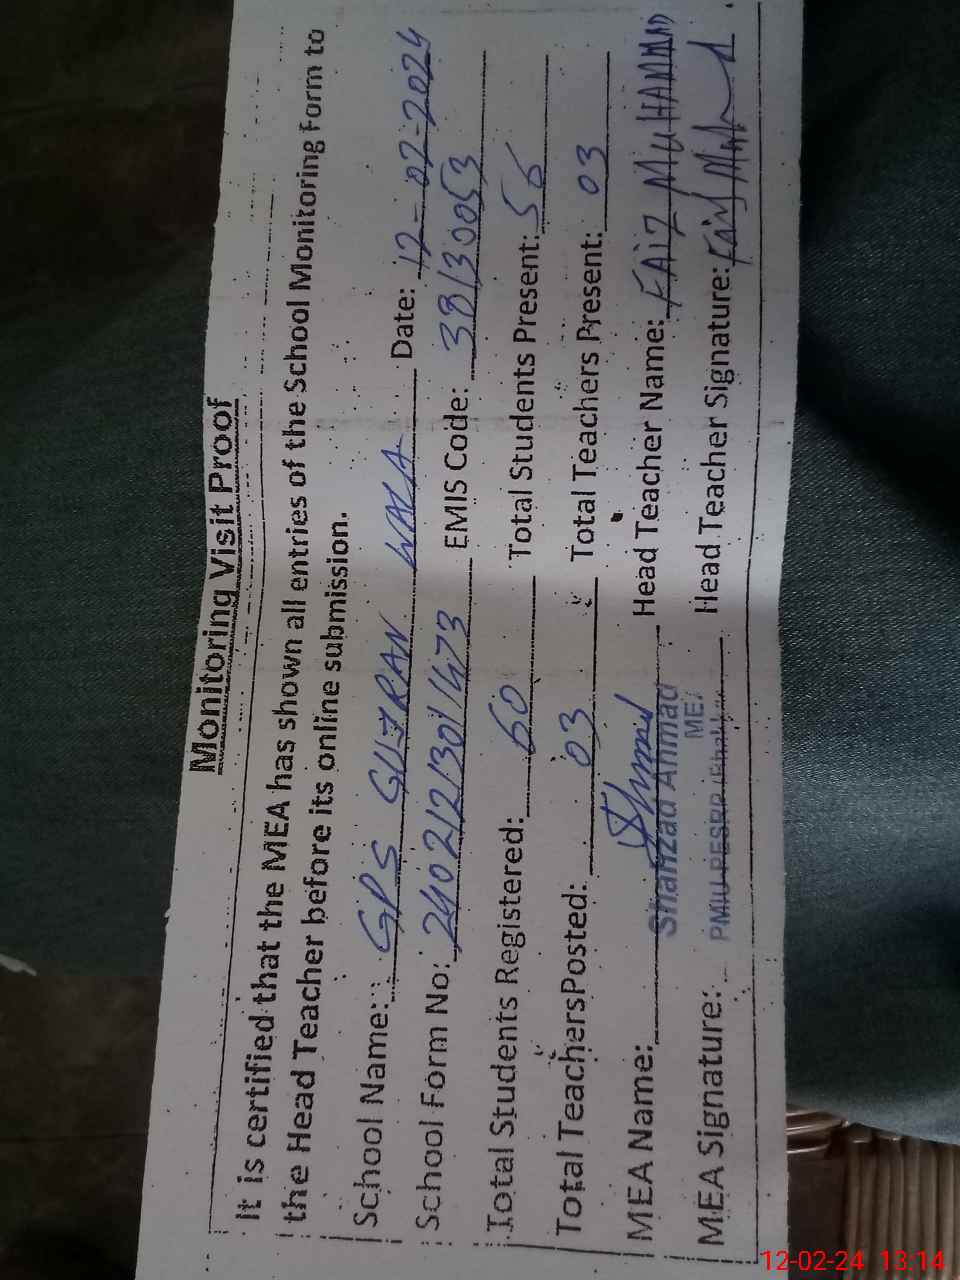 Monitoring Visit Proof
It is certified that the MEA has shown all entries of the School Monitoring Form to
the Head Teacher before its online submission.
School Name: GPS GUJRAN WALA Date: 12-02-2024
School Form No: 2402121301473 EMIS Code: 38130053
Total Students Registered: 60 Total Students Present: 56
Total TeachersPosted: 03 Total Teachers Present: 03
MEA Name: Shahzad Ahmad Head Teacher Name: FAIZ MUHAMMAD
MEA
MEA Signature: PMIU-PESRP Head Teacher Signature: Faiz Muh
12-02-24 13:14